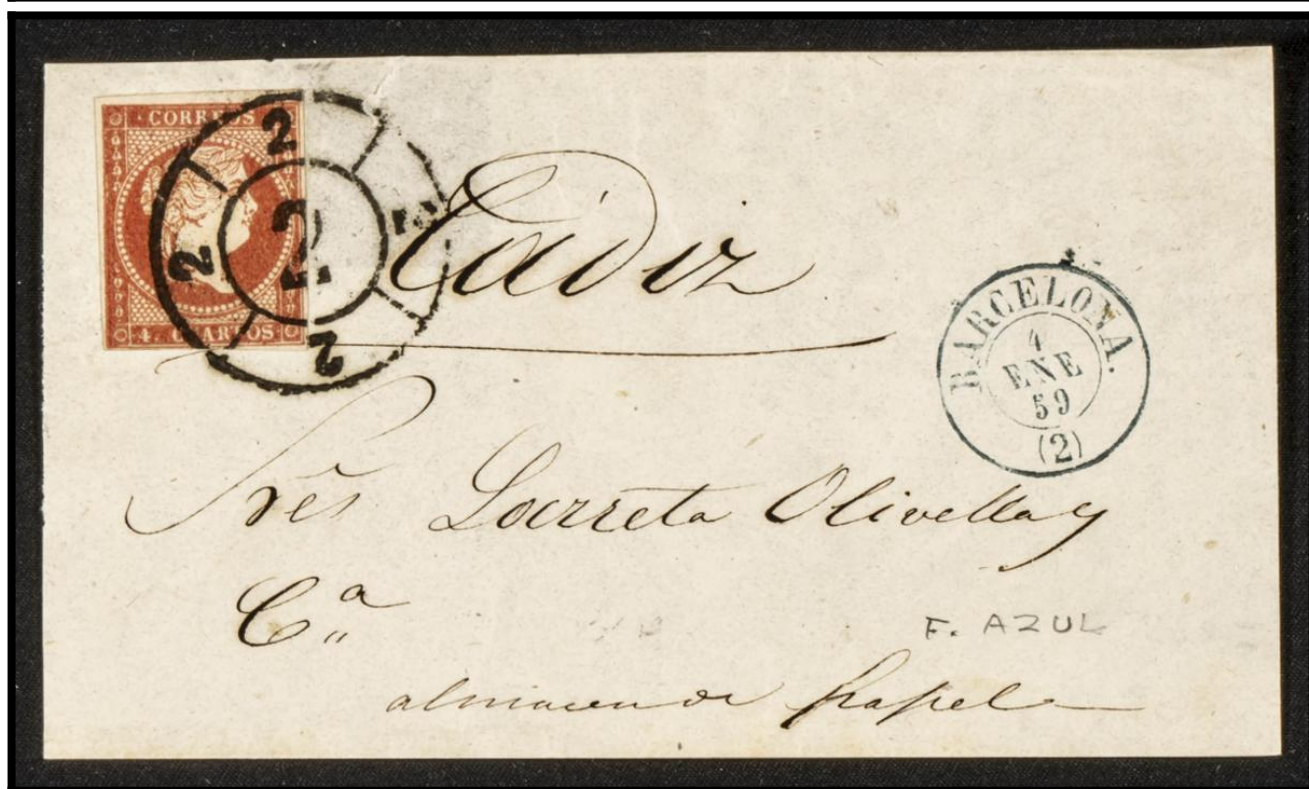 CORREOS
4. CUARTOS
2
2
2
2
Cádiz
BARCELONA.
4
ENE
59
(2)
Srés Larreta Olivella y
Cª
F. AZUL
almacen de papel